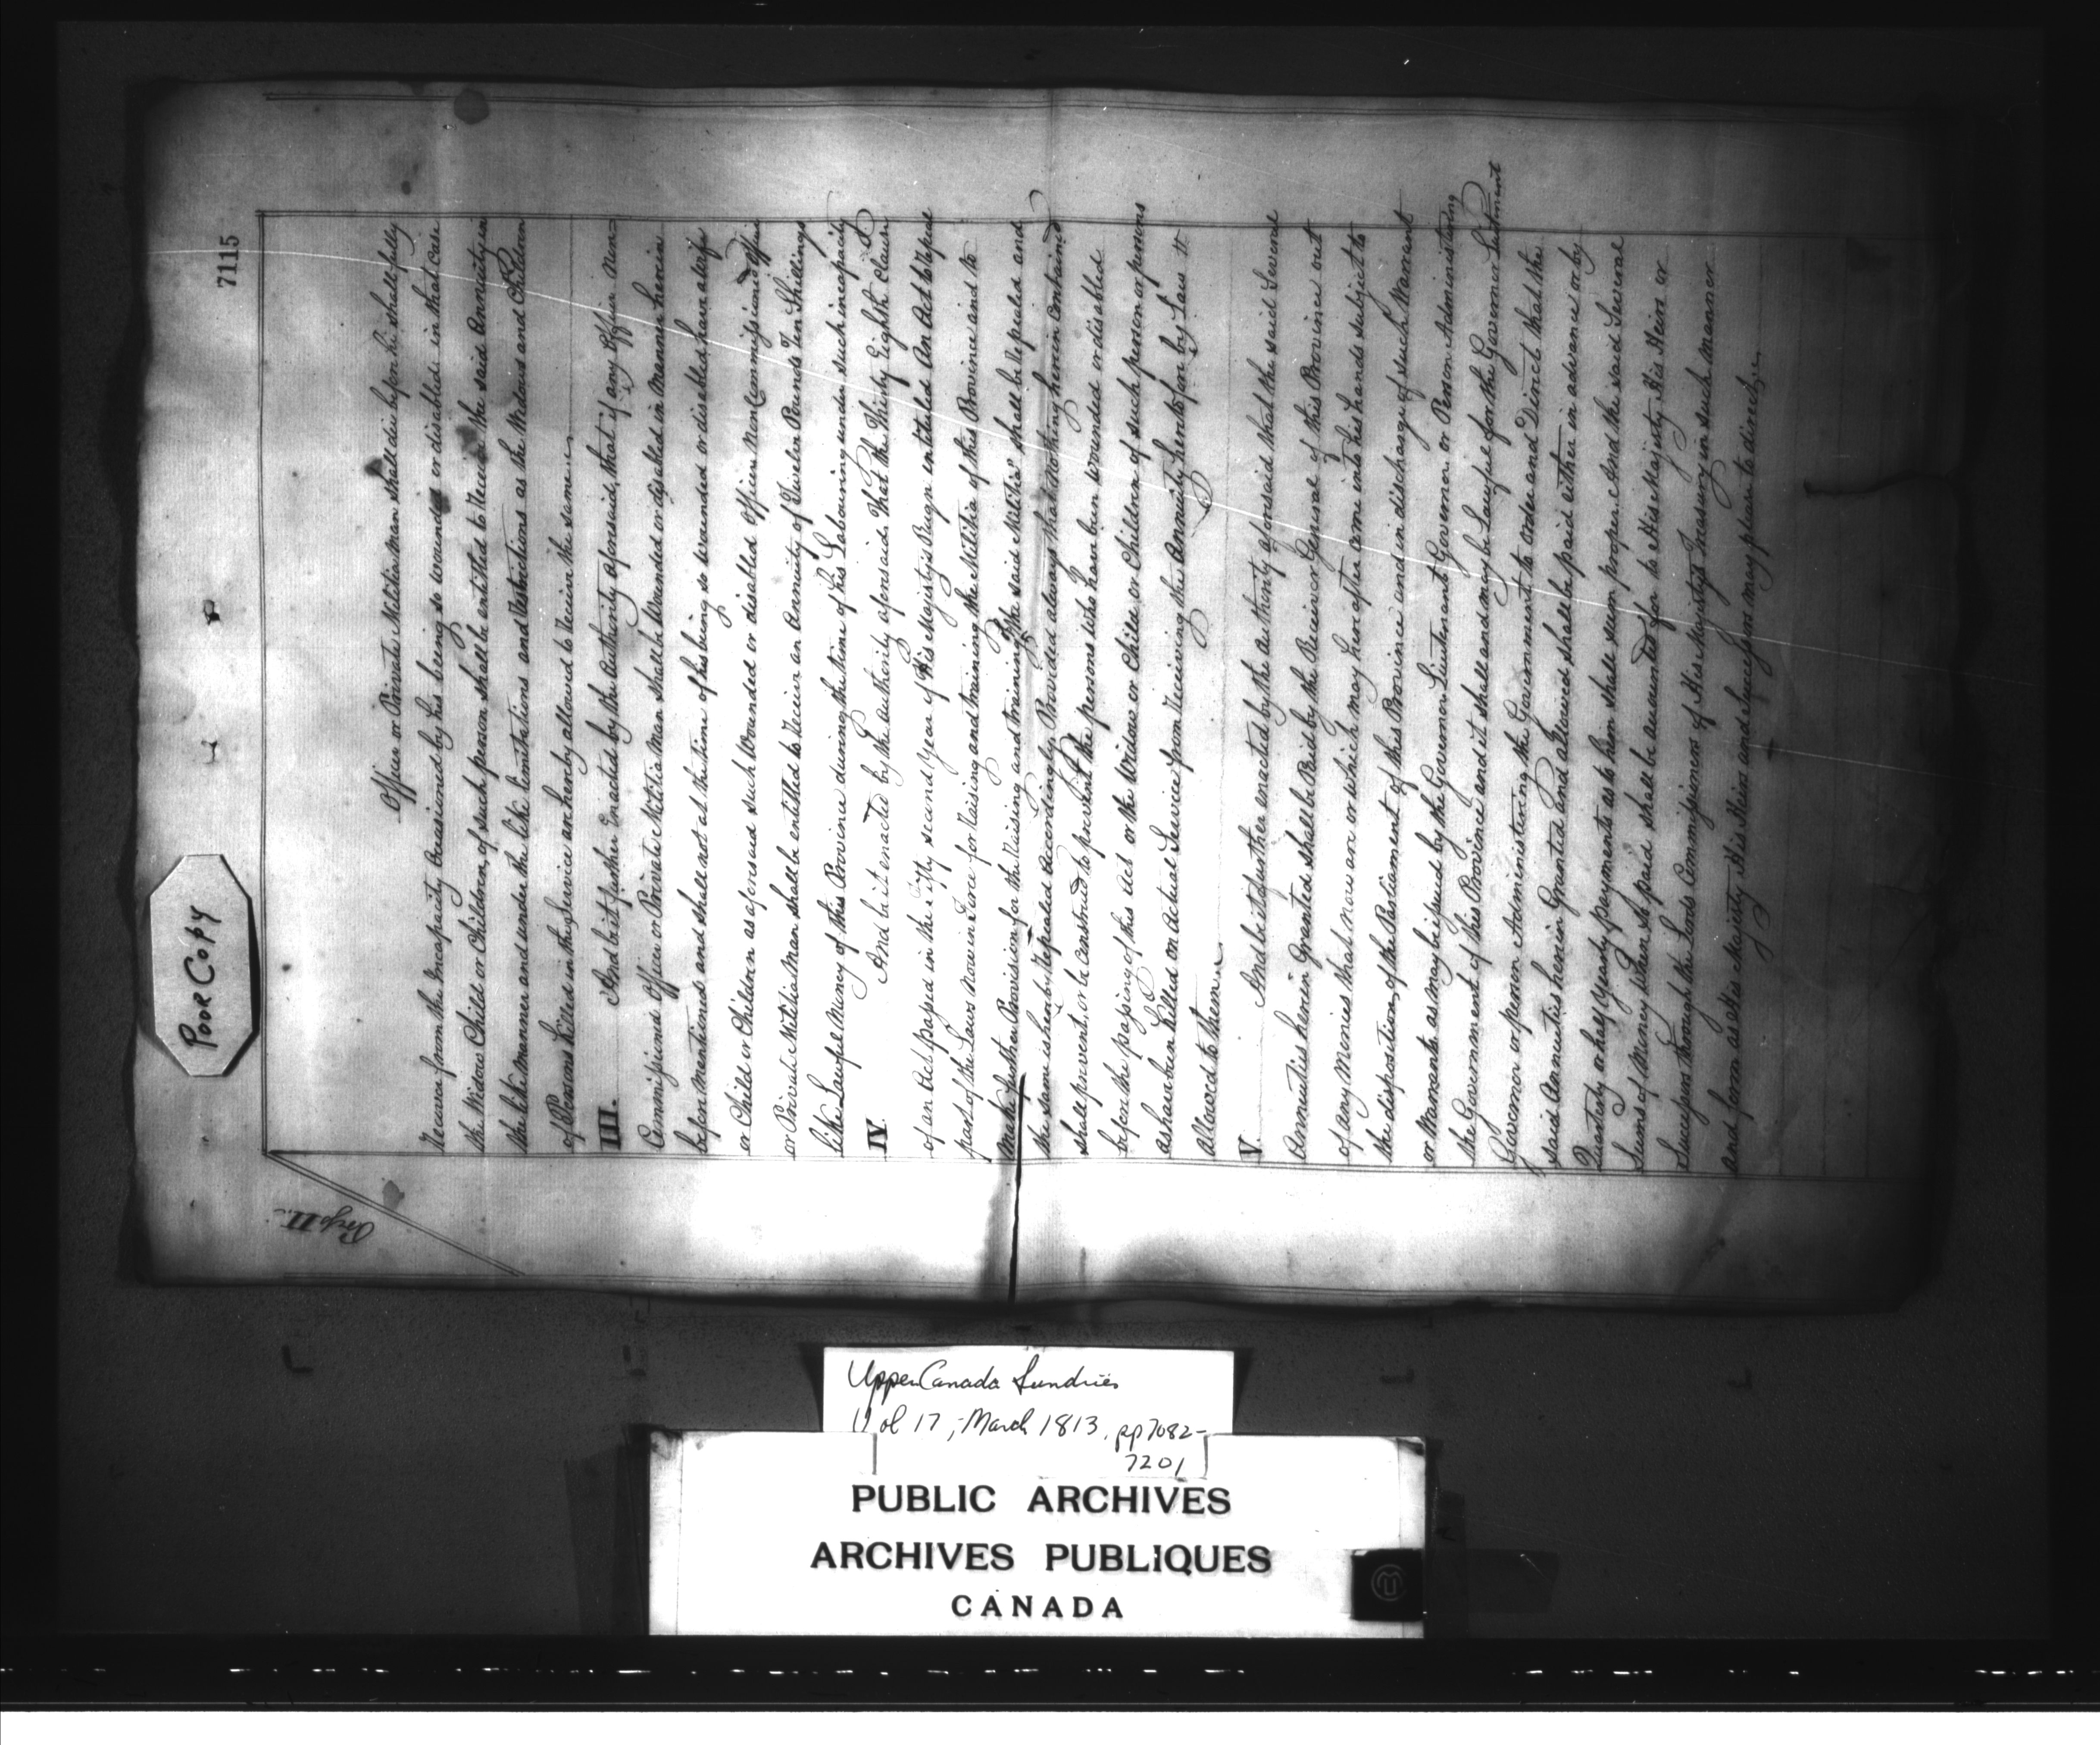 7115
Poor Copy
Page II.
Officer or Private Militia Man shall die before he shall fully
recover from the Incapacity Occasioned by his being so wounded or disabled in that Case
the Widow Child or Children of such person shall be entitled to Receive the said Annuity in
the like manner and under the like limitations and Restrictions as the Widows and Children
of Persons killed in the Service are hereby allowed to Receive the same
III. And be it further Enacted by the Authority aforesaid, that if any Officer Non
Commissioned Officer or Private Militia Man shall be Wounded or disabled in Manner herein
before mentioned and shall not at the time of his being so wounded or disabled have a wife
or Child or Children as aforesaid such Wounded or disabled Officer Non Commissioned Officer
or Private Militia Man shall be entitled to Receive an Annuity of Twelve Pounds Ten Shillings
like Lawful Money of this Province during the time of his Labouring under such incapacity
IV. And be it enacted by the Authority aforesaid That the Thirty Eighth Clause
of an Act passed in the Fifty second Year of His Majesty's Reign entitled An Act to repeal
part of the Laws now in Force for Raising and training the Militia of this Province and to
Make further Provision for the Raising and training of the said Militia" shall be repealed and
the same is hereby repealed accordingly Provided always that nothing herein contained
shall prevent or be construed to prevent the persons who have been wounded or disabled
before the passing of this Act or the Widow or Child or Children of such person or persons
as have been killed on Actual Service from receiving the Annuity heretofore by Law
allowed to them
V. And be it further enacted by the Authority aforesaid that the said Several
Annuities herein Granted shall be Paid by the Receiver General of this Province out
of any Monies that now are or which may hereafter come into his hands subject to
the disposition of the Parliament of this Province and in discharge of such Warrant
or Warrants as may be issued by the Governor Lieutenant Governor or Person Administering
the Government of this Province and it shall and may be Lawful for the Governor Lieutenant
Governor or person Administering the Government to order and Direct that the
said Annuities herein Granted and allowed shall be paid either in advance or by
Quarterly or half Yearly payments as to him shall seem proper And the said Several
Sums of Money when so paid shall be accounted for to His Majesty His Heirs or
Successors through the Lords Commissioners of His Majesty's Treasury in such Manner
and form as His Majesty His Heirs and Successors may please to direct
Upper Canada Sundries
Vol 17, - March 1813, pp 7082-
7201
PUBLIC ARCHIVES
ARCHIVES PUBLIQUES
CANADA